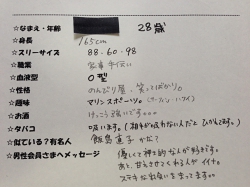 ☆なまえ・年齢 28歳
☆身長 165cm
☆スリーサイズ 88.60.98
☆職業 家事手伝い
☆血液型 O型
☆性格 のんびり屋。笑ってばかり。
☆趣味 マリンスポーツ。
☆お酒 けっこう強いです。。。
☆タバコ 吸います。(相手が吸わない人だと ひかえてます。)
☆似ている?有名人 飯島直子 かだ?
☆男性会員さまへメッセージ 優しくて紳士的な人が好きです。
あと、甘えさせてくれる人が イイナ。
ステキな出会いを待ってます。